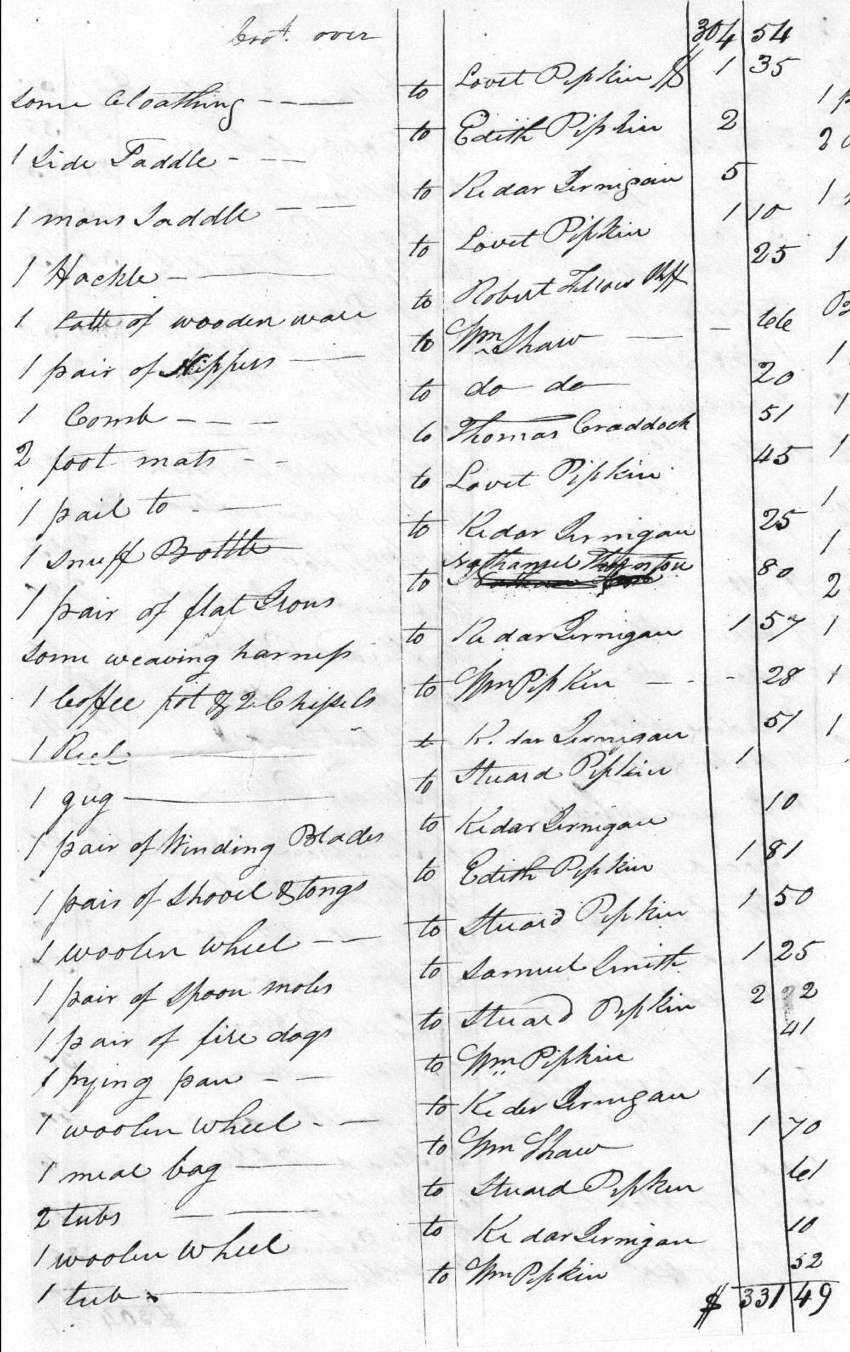 Brot. over 304 54
some Cloathing to Lovet Pipkin $ 1 35
1 Side Saddle to Edith Pipkin 2
1 mans Saddle to Kedar Jernigan 5
1 Hackle to Lovet Pipkin 1 10
1 Lott of wooden ware to Robert Fellows 25
1 pair of Nippers to Wm Shaw 66
1 Comb to do do 20
2 foot mats to Thomas Craddock 51
1 pail to to Lovet Pipkin 45
1 snuff Bottle to Kedar Jernigan 25
1 pair of flat Irons to Nathaniel 80
some weaving harness to Kedar Jernigan 1 57
1 Coffee pot & 2 Chisels to Wm Pipkin 28
1 Reel to Kedar Jernigan 51
1 gug to Stuard Pipkin 1
1 pair of Winding Blades to Kedar Jernigan 10
1 pair of Shovel & tongs to Edith Pipkin 1 81
1 woolen wheel to Stuard Pipkin 1 50
1 pair of spoon moles to Samuel Smith 1 25
1 pair of fire dogs to Stuard Pipkin 2 22
1 frying pan to Wm Pipkin 41
1 woolen wheel to Keder Jernigan 1
1 meal bag to Wm Shaw 1 70
2 tubs to Stuard Pipkin 61
1 woolen wheel to Kedar Jernigan 10
1 tub to Wm Pipkin 52
$ 331 49